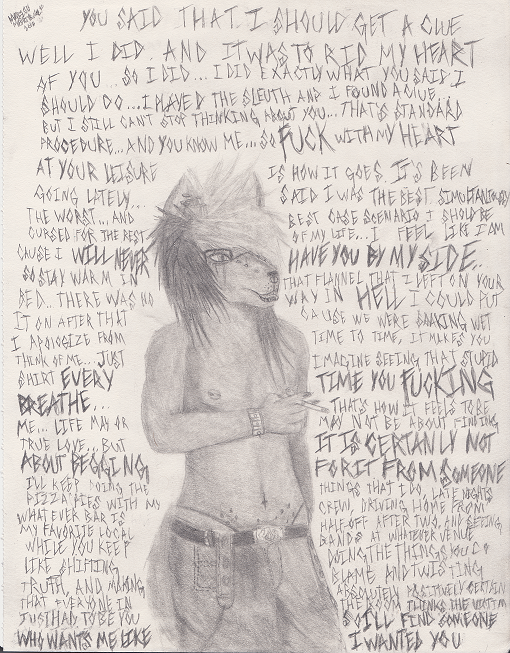 YOU SAID THAT I SHOULD GET A CLUE
WELL I DID. AND IT WAS TO RID MY HEART
OF YOU... SO I DID... I DID EXACTLY WHAT YOU SAID I
SHOULD DO... I PLAYED THE SLEUTH AND I FOUND A CLUE
BUT I STILL CAN'T STOP THINKING ABOUT YOU... THAT'S STANDARD
PROCEDURE... AND YOU KNOW ME... SO FUCK WITH MY HEART
AT YOUR LEISURE IS HOW IT GOES. IT'S BEEN
GOING LATELY... SAID I WAS THE BEST. SIMULTANIOUSLY
THE WORST... AND BEST CASE SCENARIO I SHOULD BE
CURSED FOR THE BEST OF MY LIFE... I FEEL LIKE I AM
CAUSE I WILL NEVER HAVE YOU BY MY SIDE.
SO STAY WARM IN THAT FLANNEL THAT I LEFT ON YOUR
BED... THERE WAS NO WAY IN HELL I COULD PUT
IT ON AFTER THAT CAUSE WE WERE SOAKING WET
I APOLOGIZE FROM TIME TO TIME, IT MAKES YOU
THINK OF ME... JUST IMAGINE SEEING THAT STUPID
SHIRT EVERY TIME YOU FUCKING
BREATHE... THAT'S HOW IT FEELS TO BE
ME... LIFE MAY OR MAY NOT BE ABOUT FINDING
TRUE LOVE... BUT IT IS CERTAINLY NOT
ABOUT BEGGING FOR IT FROM SOMEONE
I'LL KEEP DOING THE THINGS THAT I DO, LATE NIGHTS
PIZZA PIES WITH MY CREW, DRIVING HOME FROM
WHAT EVER BAR IS HALF OFF AFTER TWO, AND SEEING
MY FAVORITE LOCAL BANDS AT WHATEVER VENUE
WHILE YOU KEEP DOING THE THINGS YOU DO
LIKE SHIFTING BLAME AND TWISTING
TRUTH, AND MAKING ABSOLUTELY POSITIVELY CERTAIN
THAT EVERYONE IN THE ROOM THINKS THE VICTIM
JUST HAD TO BE YOU SO I'LL FIND SOMEONE
WHO WANTS ME LIKE I WANTED YOU